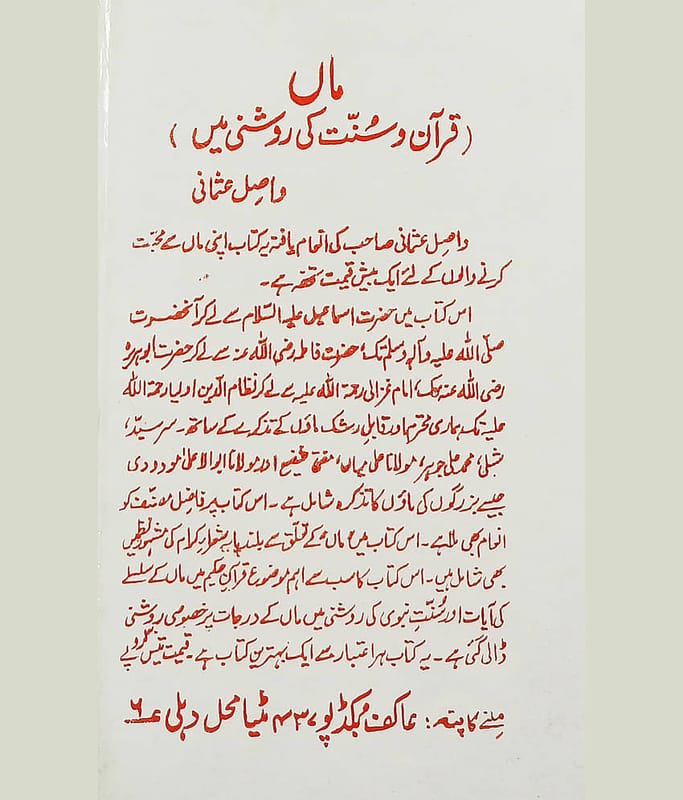 ماں
(قرآن و سُنّت کی روشنی میں)
واصِل عثمانی
واصِل عثمانی صاحب کی انعام یافتہ یہ کتاب اپنی ماں سے محبّت
کرنے والوں کے لئے ایک بیش قیمت تحفہ ہے۔
اس کتاب میں حضرت اسماعیل علیہ السّلام سے لے کر آنحضرت
صلّی اللہ علیہ وآلہ وسلم تک، حضرت فاطمہ رضی اللہ عنہ سے لے کر حضرت ابوہریرہ
رضی اللہ عنہ تک، امام غزالی رحمۃ اللہ علیہ سے لے کر نظام الدّین اولیا رحمۃ اللہ
علیہ تک ہماری محترم اور قابلِ رشک ماؤں کے تذکرے کے ساتھ۔ سرسیّد،
شبلی، محمد علی جوہر، مولانا علی میاں، مفتی شفیع اور مولانا ابوالاعلیٰ مودودی
جیسے بزرگوں کی ماؤں کا تذکرہ شامل ہے۔ اس کتاب پر فاضل مصنّف کو
انعام بھی ملا ہے۔ اس کتاب میں ماں کے تعلّق سے بلند پایہ شعراء کرام کی مشہور نظمیں
بھی شامل ہیں۔ اس کتاب کا سب سے اہم موضوع قرآنِ حکیم میں ماں کے سلسلے
کی آیات اور سُنّتِ نبوی کی روشنی میں ماں کے درجات پر خصوصی روشنی
ڈالی گئی ہے۔ یہ کتاب ہر اعتبار سے ایک بہترین کتاب ہے۔ قیمت تیس روپے
مِلنے کا پتہ: عاکف بُکڈپو ۴۳۷ مٹیا محل دہلی ۶